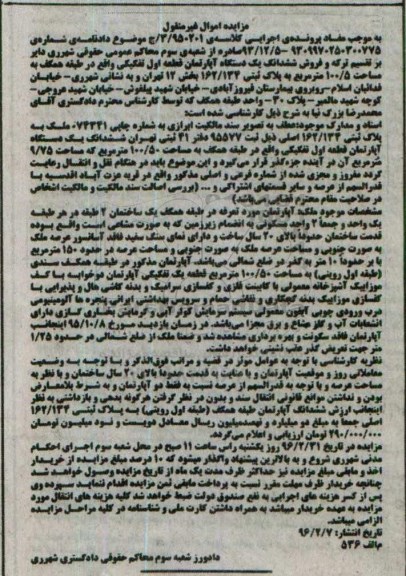 مزایده اموال غیرمنقول
به موجب مفاد پرونده‌ی اجرایی کلاسه‌ی ۳/۹۵۰۲۰۱/ج موضوع دادنامه‌ی شماره‌ی
۹۳۰۹۹۷۰۲۵۰۳۰۰۷۷۵ -۹۳/۱۲/۵صادره از شعبه‌ی سوم محاکم عمومی حقوقی شهرری دایر
بر تقسیم ترکه و فروش ششدانگ یک دستگاه آپارتمان قطعه اول تفکیکی واقع در طبقه همکف به
مساحت ۱۰۰/۵ مترمربع به پلاک ثبتی ۱۶۲/۱۳۴ بخش ۱۲ تهران و به نشانی شهرری- خیابان
فدائیان اسلام-روبروی بیمارستان فیروزآبادی- خیابان شهید پیلغوش - خیابان شهید عروجی-
کوچه شهید مالمیر- پلاک ۳۰- واحد طبقه همکف که توسط کارشناس محترم دادگستری آقای
محمدرضا بزرگ نیا به شرح ذیل کارشناسی شده است:
اسناد و مدارک موجود:عطف به تصویر سند مالکیت ابرازی به شماره چاپی ۰۷۴۳۴۱ ملک به
پلاک ثبتی ۱۶۲/۱۳۴ اصلی ذیل ثبت ۹۵۵۷۷ دفتر ۴۱ ثبتی تهران ششدانگ یک دستگاه
آپارتمان قطعه اول تفکیکی واقع در طبقه همکف به مساحت ۱۰۰/۵۰ مترمربع که مساحت ۹/۷۵
مترمربع آن در آینده جزءگذر قرار می‌گیرد و این موضوع باید در هنگام نقل و انتقال رعایت
گردد مفروز و مجزی شده از شماره فرعی و اصلی مذکور واقع در قریه عزت آباد اقدسیه با
قدرالسهم از عرصه و سایر قسمتهای اشتراکی و ... (بررسی اصالت سند مالکیت و مالکیت اشخاص
در صلاحیت مقام محترم قضایی می‌باشد)
مشخصات موجود ملک: آپارتمان مورد تعرفه در طبقه همکف یک ساختمان ۲ طبقه در هر طبقه
یک واحد و جمعاً ۲ واحد مسکونی به انضمام زیرزمین که به صورت مشاعی است واقع بوده
قدمت ساختمان حدوداً بالای ۲۰ سال ساخت و دارای نمای سنگ سفید فاقد آسانسور عرصه ملک
به صورت جنوبی و مساحت عرصه ملک به صورت جنوبی و مساحت عرصه در حدود ۱۵۰ مترمربع
با بر حدوداً ۱۰ متر به گذر در ضلع شمالی می‌باشد. آپارتمان مذکور در طبقه همکف سندی
(طبقه اول رویتی) به مساحت ۱۰۰/۵۰ مترمربع قطعه یک تفکیکی آپارتمان دوخوابه با کف
موزاییک آشپزخانه معمولی با کابینت فلزی و کفسازی سرامیک و بدنه کاشی هال و پذیرایی با
کفسازی موزاییک بدنه گچکاری و نقاشی حمام و سرویس بهداشتی ایرانی پنجره ها آلومینیومی
درب ورودی چوبی آیفون معمولی سیستم سرمایش کولر آبی و گرمایش بخاری گازی دارای
انشعابات آب و گاز مشاع و برق مجزا می‌باشد. در زمان بازدید مورخ ۹۵/۱۰/۸ اینجانب
آپارتمان فاقد سکونت و بهره برداری مشاهده شد و ضمناً ملک از ضلع شمالی در حدود ۱/۲۵
متر جهت تعریض گذر عقب نشینی خواهد داشت.
نظریه کارشناسی با توجه به عوامل موثر در قضیه و مراتب فوق‌الذکر و با توجه به وضعیت
معاملاتی روز و موقعیت آپارتمان و با عنایت به قدمت حدوداً بالای ۲۰ سال ساختمان و با نظر به
مساحت عرصه و با توجه به قدرالسهم از عرصه نسبت به فقط دو آپارتمان و به شرط بلامعارض
بودن و نداشتن موانع قانونی انتقال سند و بدون در نظر گرفتن هرگونه بدهی و بازداشتی به نظر
اینجانب ارزش ششدانگ آپارتمان طبقه همکف (طبقه اول رویتی) به پلاک ثبتی ۱۶۲/۱۳۴
اصلی جمعاً به مبلغ دو میلیارد و نهصدمیلیون ریال معادل دویست و نود میلیون تومان
۲۹۰/۰۰۰/۰۰۰ تومان ارزیابی و اعلام می‌گردد.
مزایده در تاریخ ۹۶/۲/۳۱ روز یکشنبه راس ساعت ۱۱ صبح در محل شعبه سوم اجرای احکام
مدنی شهرری شروع و به بالاترین پیشنهاد واگذار میشود که ۱۰ درصد مبلغ مزایده از خریدار
اخذ و مابقی مبلغ مزایده نیز حداکثر ظرف مدت یک ماه از تاریخ مزایده وصول خواهد شد
چنانچه خریدار ظرف مهلت مقرر نسبت به پرداخت مابقی ثمن مزایده اقدام ننماید سپرده وی
پس از کسر هزینه های اجرایی به نفع صندوق دولت ضبط خواهد شد کلیه هزینه های انتقال مورد
مزایده به عهده خریدار میباشد به همراه داشتن کارت ملی و شناسنامه در کلیه مراحل مزایده
الزامی میباشد.
تاریخ انتشار: ۹۶/۲/۷
م‌الف ۵۳۶
دادورز شعبه سوم محاکم حقوقی دادگستری شهرری